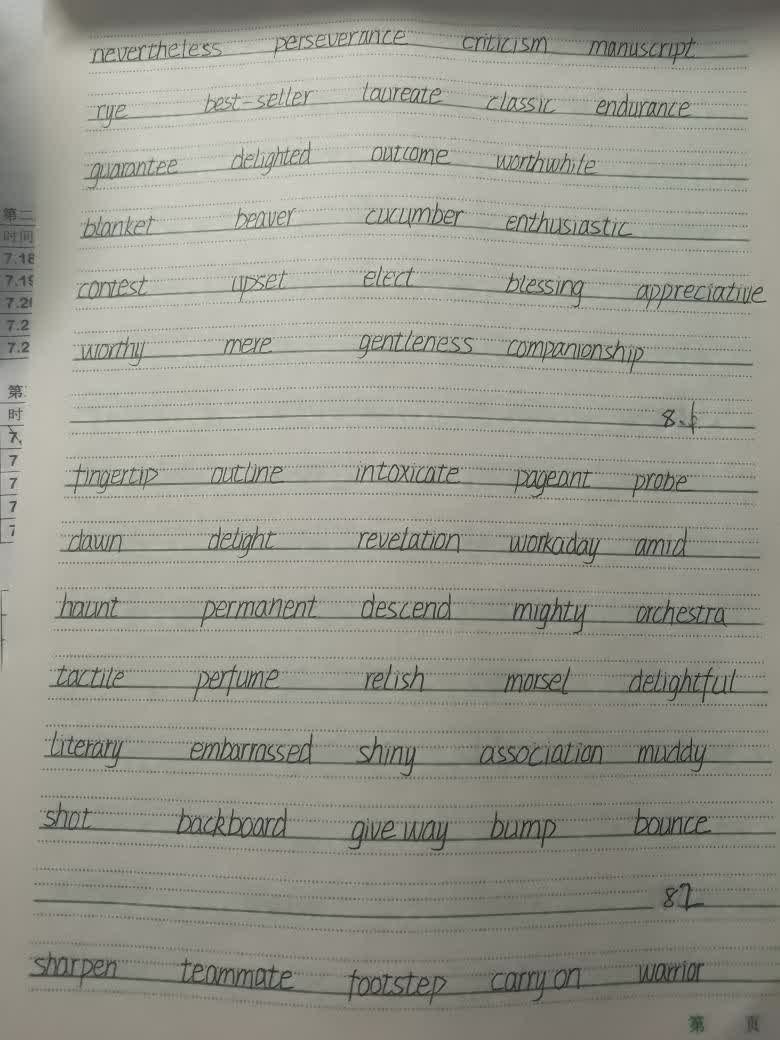 nevertheless perseverance criticism manuscript
rye best-seller laureate classic endurance
guarantee delighted outcome worthwhile
blanket beaver cucumber enthusiastic
contest upset elect blessing appreciative
worthy mere gentleness companionship
8.1
fingertip outline intoxicate pageant probe
dawn delight revelation workaday amid
haunt permanent descend mighty orchestra
tactile perfume relish morsel delightful
literary embarrassed shiny association muddy
shot backboard give way bump bounce
82
sharpen teammate footstep carry on warrior
第 页
第二
时间
7.18
7.19
7.20
7.2
7.2
第
时
7
7
7
7
7